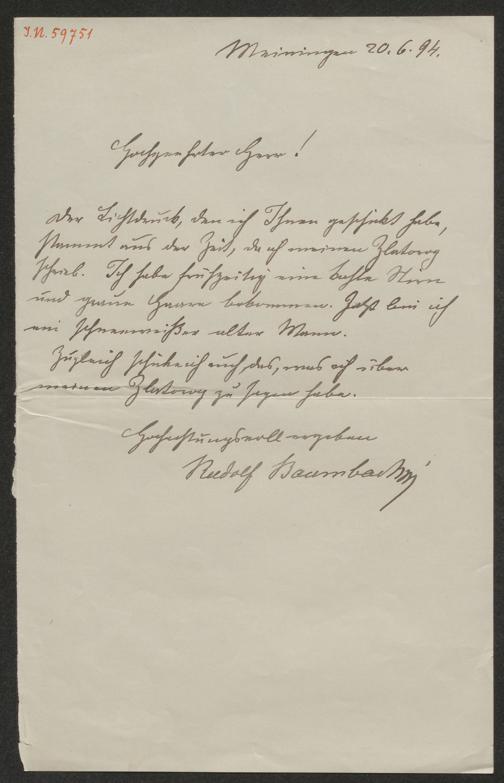 I.N. 59751
Meiningen 20. 6. 94.
Hochgeehrter Herr!
Der Lichtdruck, den ich Ihnen geschickt habe,
stammt aus der Zeit, da ich meinen Zlatorog
schrieb. Ich habe frühzeitig eine kahle Stirn
und graue Haare bekommen. Jetzt bin ich
ein schneeweißer alter Mann.
Zugleich schicke ich auch das, was ich über
meinen Zlatorog zu sagen habe.
Hochachtungsvoll ergeben
Rudolf Baumbach